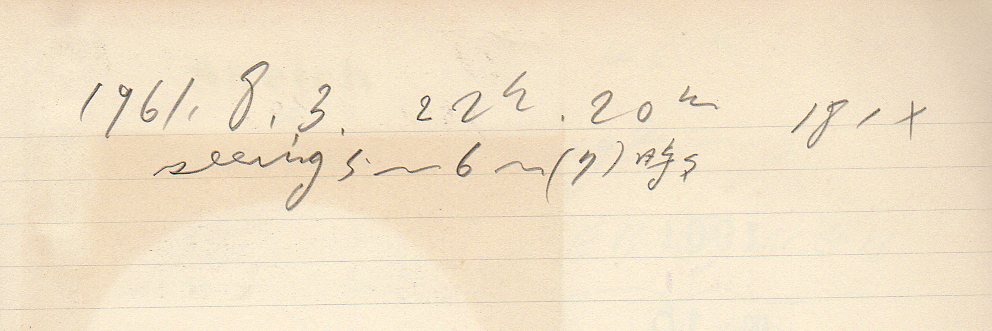 1961. 8. 3. 22h. 20m 181x
seeing 5~6~(7) 時々